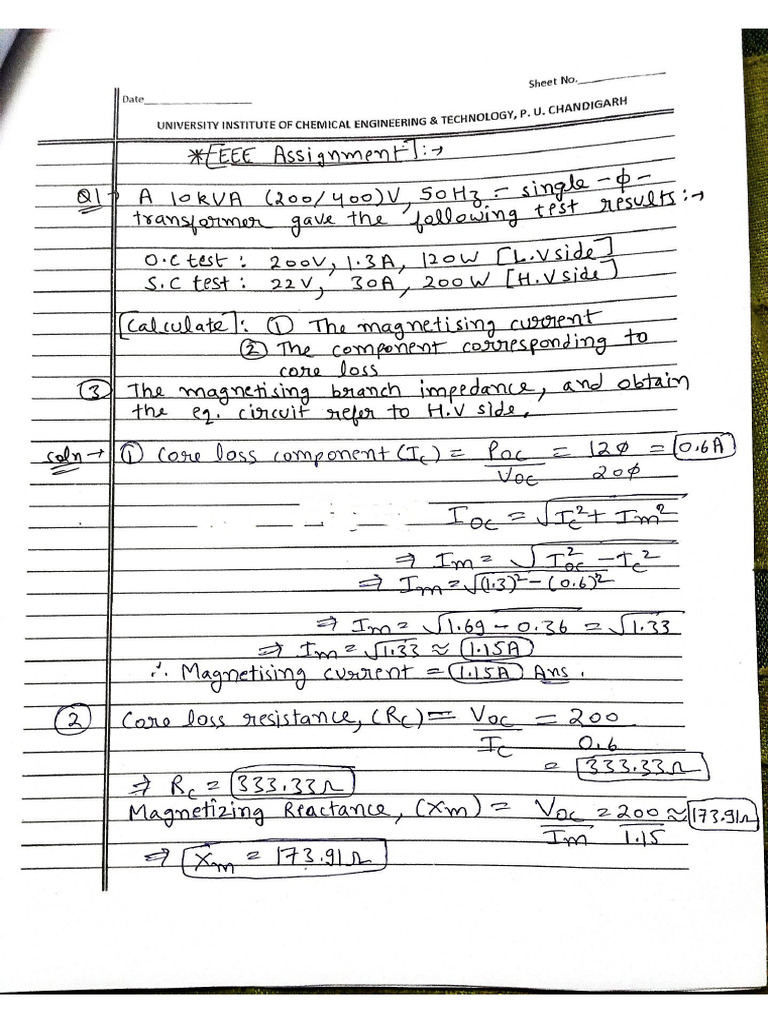 Sheet No.
Date
UNIVERSITY INSTITUTE OF CHEMICAL ENGINEERING & TECHNOLOGY, P. U. CHANDIGARH
*[EEE Assignment]:→
Q1→ A 10 kVA (200/400)V, 50Hz - single-ϕ-
transformer gave the following test results:→
O.C test : 200V, 1.3A, 120W [L.V side]
S.C test : 22V, 30A, 200W [H.V side]
[Calculate]: ① The magnetising current
② The component corresponding to
core loss
③ The magnetising branch impedance, and obtain
the eq. circuit refer to H.V side.
Soln→ ① Core loss component (Ic) = Poc/Voc = 120/200 = 0.6A
Ioc = √(Ic² + Im²)
⇒ Im = √(Ioc² - Ic²)
⇒ Im = √((1.3)² - (0.6)²)
⇒ Im = √(1.69 - 0.36) = √1.33
⇒ Im = √1.33 ≈ 1.15A
∴ Magnetising current = 1.15A Ans.
② Core loss resistance, (Rc) = Voc/Ic = 200/0.6
= 333.33Ω
⇒ Rc = 333.33Ω
Magnetizing Reactance, (Xm) = Voc/Im = 200/1.15 ≈ 173.91Ω
⇒ Xm = 173.91Ω